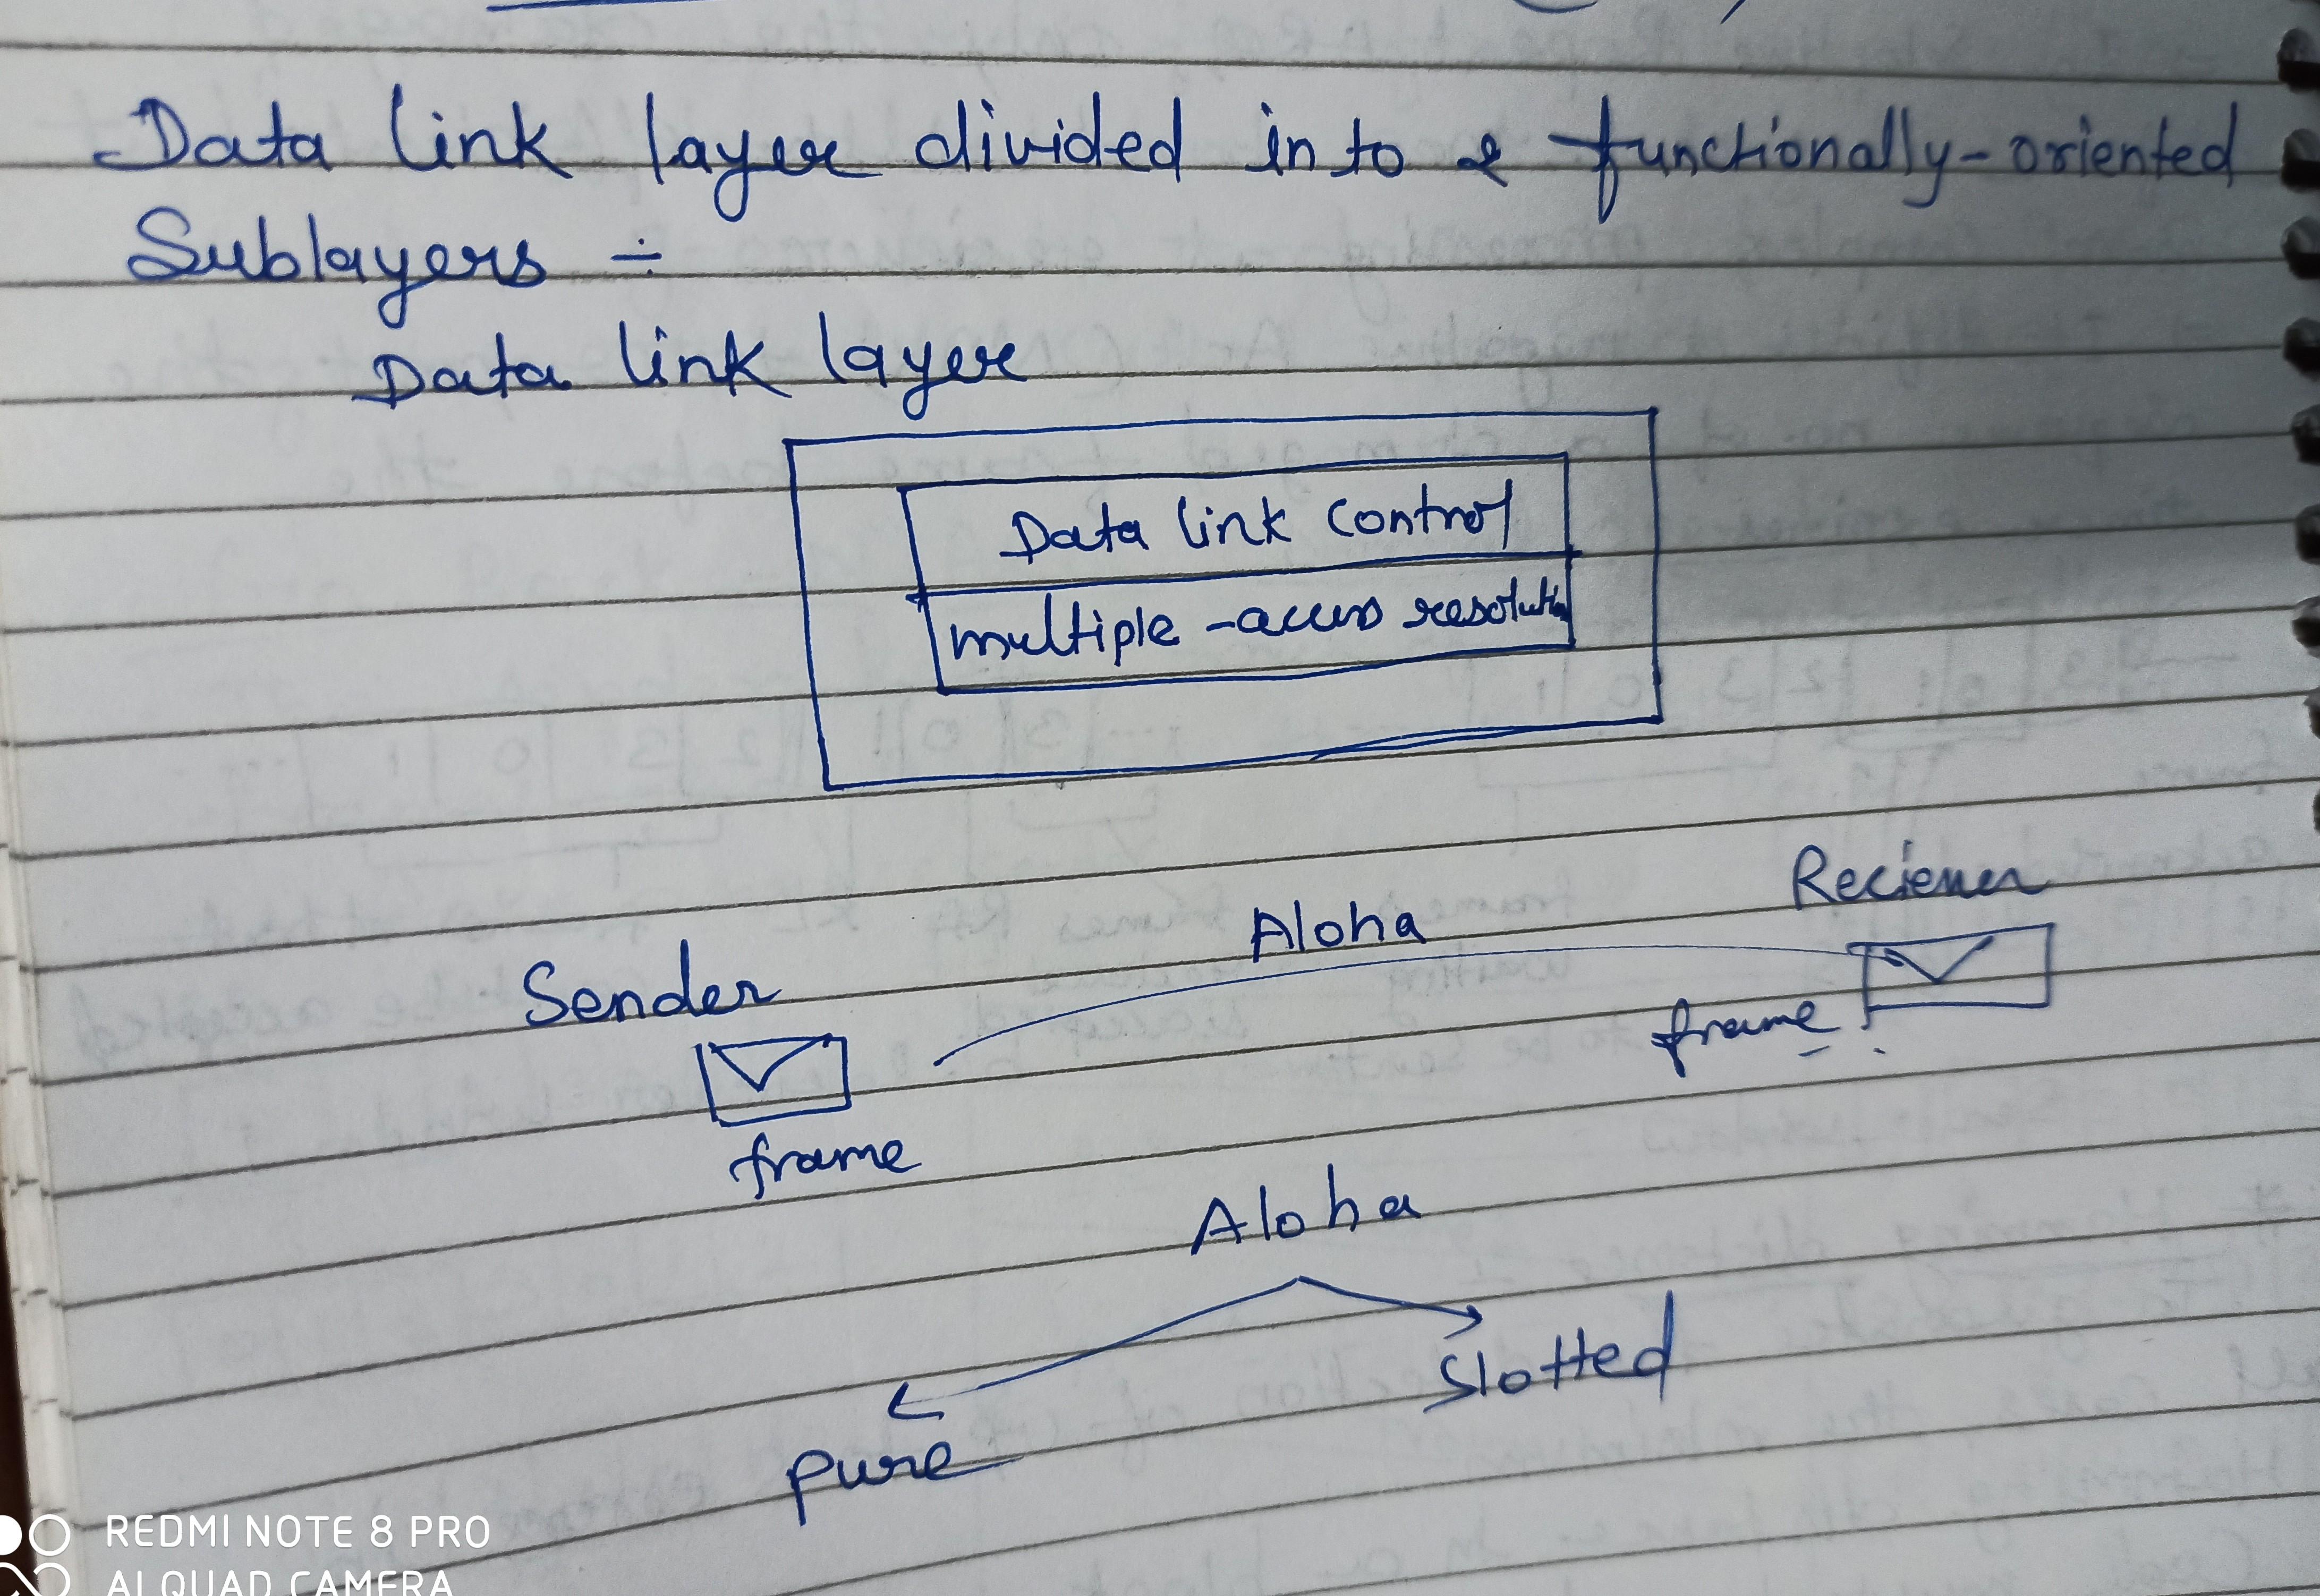 Data link layer divided into 2 functionally-oriented
Sublayers :-
Data link layer
Data link control
multiple-access resolution
Reciever
Aloha
Sender
frame
frame
Aloha
Slotted
pure
REDMI NOTE 8 PRO
AI QUAD CAMERA